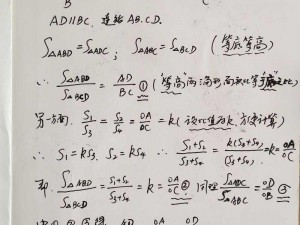 B C
AD∥BC, 连结 AB.CD.
S△ABD = S△ADC; S△ABC = S△BCD (等底等高)
∴ S△ABD/S△BCD = AD/BC ① ("等高"两三角形面积比等于底之比)
另一方面, S1/S3 = S2/S4 = OA/OC = k (设比值为k, 方便计算)
∴ S1 = kS3, S2 = kS4 ∴ (S1+S2)/(S3+S4) = k(S3+S4)/(S3+S4) = k = OA/OC
即: S△ABD/S△BCD = (S1+S2)/(S3+S4) = k = OA/OC ② 同理 S△ADC/S△ABC = OD/OB ③
OA OD